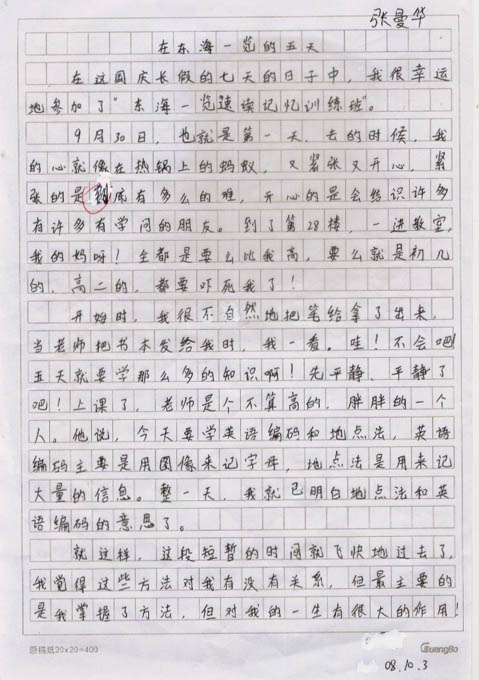 张曼华
在东海一览的五天
在这国庆长假的七天的日子中，我很幸运
地参加了"东海一览速读记忆训练班"。
9月30日，也就是第一天。去的时候，我
的心就像在热锅上的蚂蚁，又紧张又开心，紧
张的是到底有多么的难，开心的是会结识许多
有许多有学问的朋友。到了第28楼，一进教室，
我的妈呀！全都是要么比我高，要么就是初几
的、高二的，都要吓死我了！
开始时，我很不自然地把笔给拿了出来，
当老师把书本发给我时，我一看。哇！不会吧！
五天就要学那么多的知识啊！先平静、平静了
吧！上课了，老师是个不算高的，胖胖的一个
人。他说，今天要学英语编码和地点法，英语
编码主要是用图像来记字母，地点法是用来记
大量的信息。整一天，我就已明白地点法和英
语编码的意思了。
就这样，这段短暂的时间就飞快地过去了，
我觉得这些方法对我有没有关系，但最主要的
是我掌握了方法，但对我的一生有很大的作用！
原稿纸20×20=400 GuangBo
08.10.3